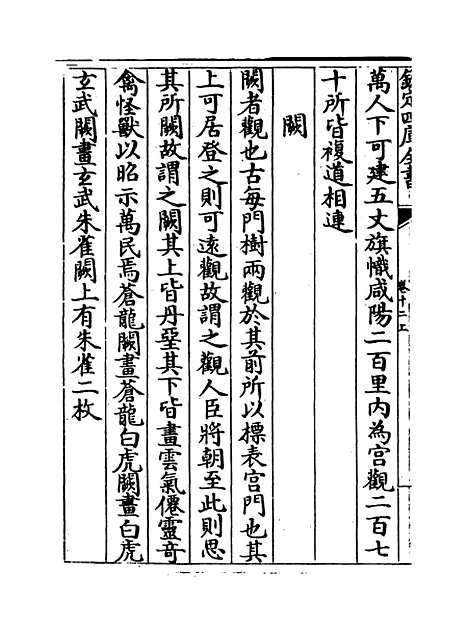 欽定四庫全書
卷十二上
萬人下可建五丈旗幟咸陽二百里内為宫觀二百七
十所皆複道相連
闕
闕者觀也古每門樹兩觀於其前所以標表宫門也其
上可居登之則可逺觀故謂之觀人臣將朝至此則思
其所闕故謂之闕其上皆丹堊其下皆畫雲氣僊靈竒
禽怪獸以昭示萬民焉蒼龍闕畫蒼龍白虎闕畫白虎
玄武闕畫玄武朱雀闕上有朱雀二枚